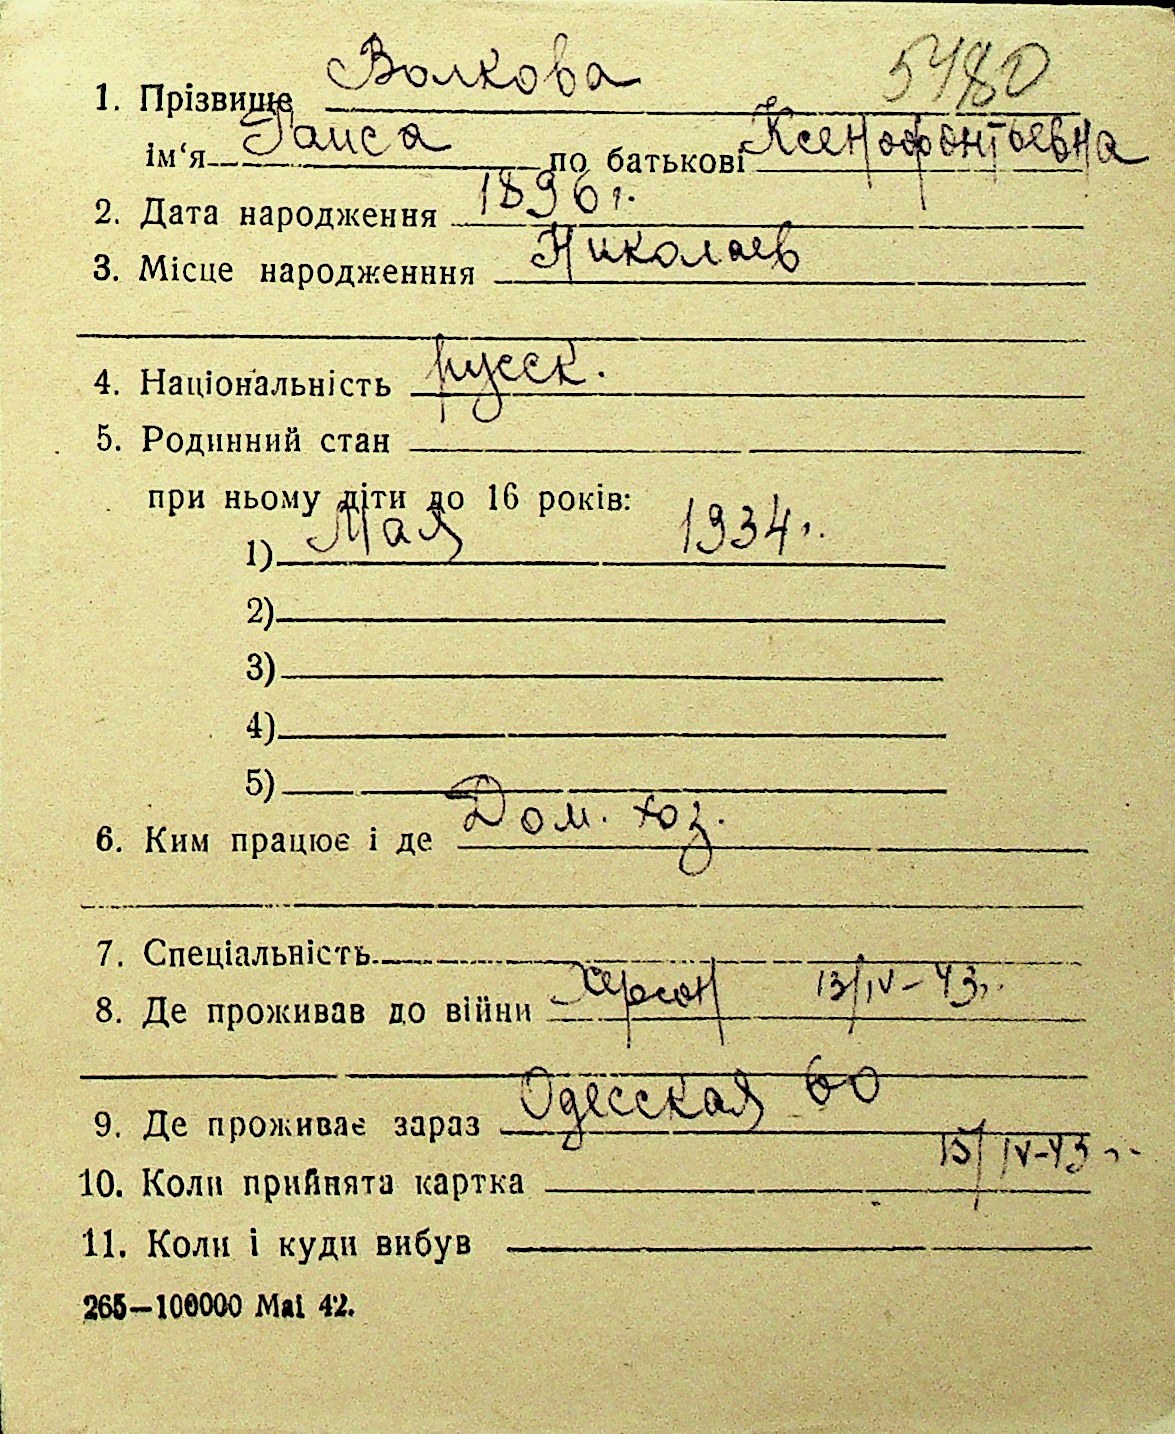 5480
1. Прізвище Волкова
ім‘я Таиса по батькові Ксенофонтоевна
2. Дата народження 1896 г.
3. Місце народженння Николаев
4. Національність русск.
5. Родинний стан
при ньому діти до 16 років:
1) Мая 1934 г.
2)
3)
4)
5)
6. Ким працює і де Дом. хоз.
7. Спеціальність
8. Де проживав до війни Херсон 13/IV-43 г.
9. Де проживає зараз Одесская 60
10. Коли прийнята картка 15/IV-43 г.
11. Коли і куди вибув
265—100000 Mai 42.